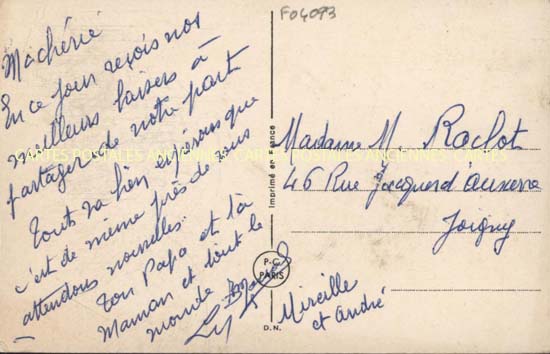 F04093
Ma chérie
En ce jour reçois nos
meilleurs baisers à
partager de notre part
Tout va bien espérons que
c'est de même près de vous
attendons nouvelles.
Ton Papa et ta
Maman et tout le
monde
Madame M. Raclot
46 Rue Jacquerd Auxerre
Joigny
Mireille
et André
CARTES POSTALES ANCIENNES CARTES POSTALES ANCIENNES CARTES POSTALES ANCIENNES
Imprimé en France
P.C.
PARIS
D.N.